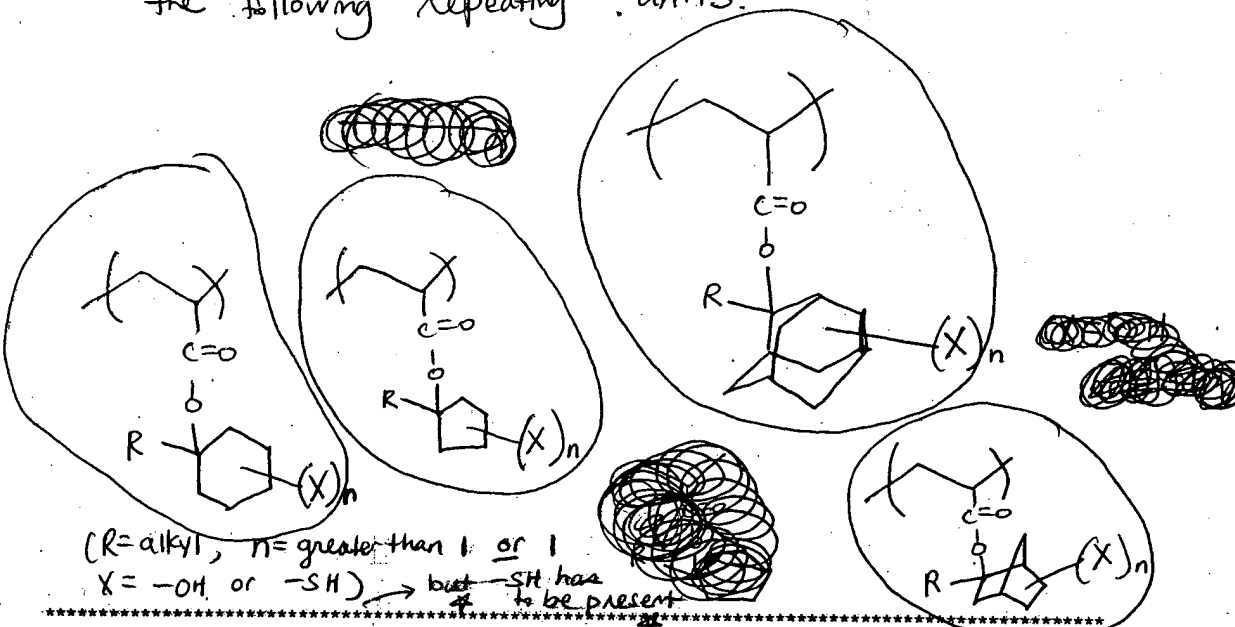 the following repeating units.
C=O
O
R
(X)n
C=O
O
R
(X)n
C=O
O
R
(X)n
C=O
O
R
(X)n
(R=alkyl, n=greater than 1 or 1
X= -OH or -SH) → but -SH has
to be present